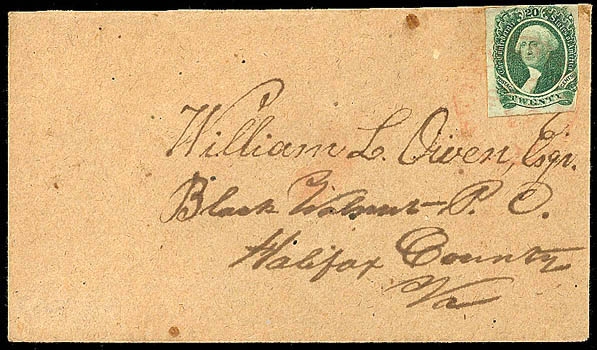 20
The Confederate States of America
TWENTY
William L. Owen, Esqr.
Black Walnut P. O.
Halifax County
Va